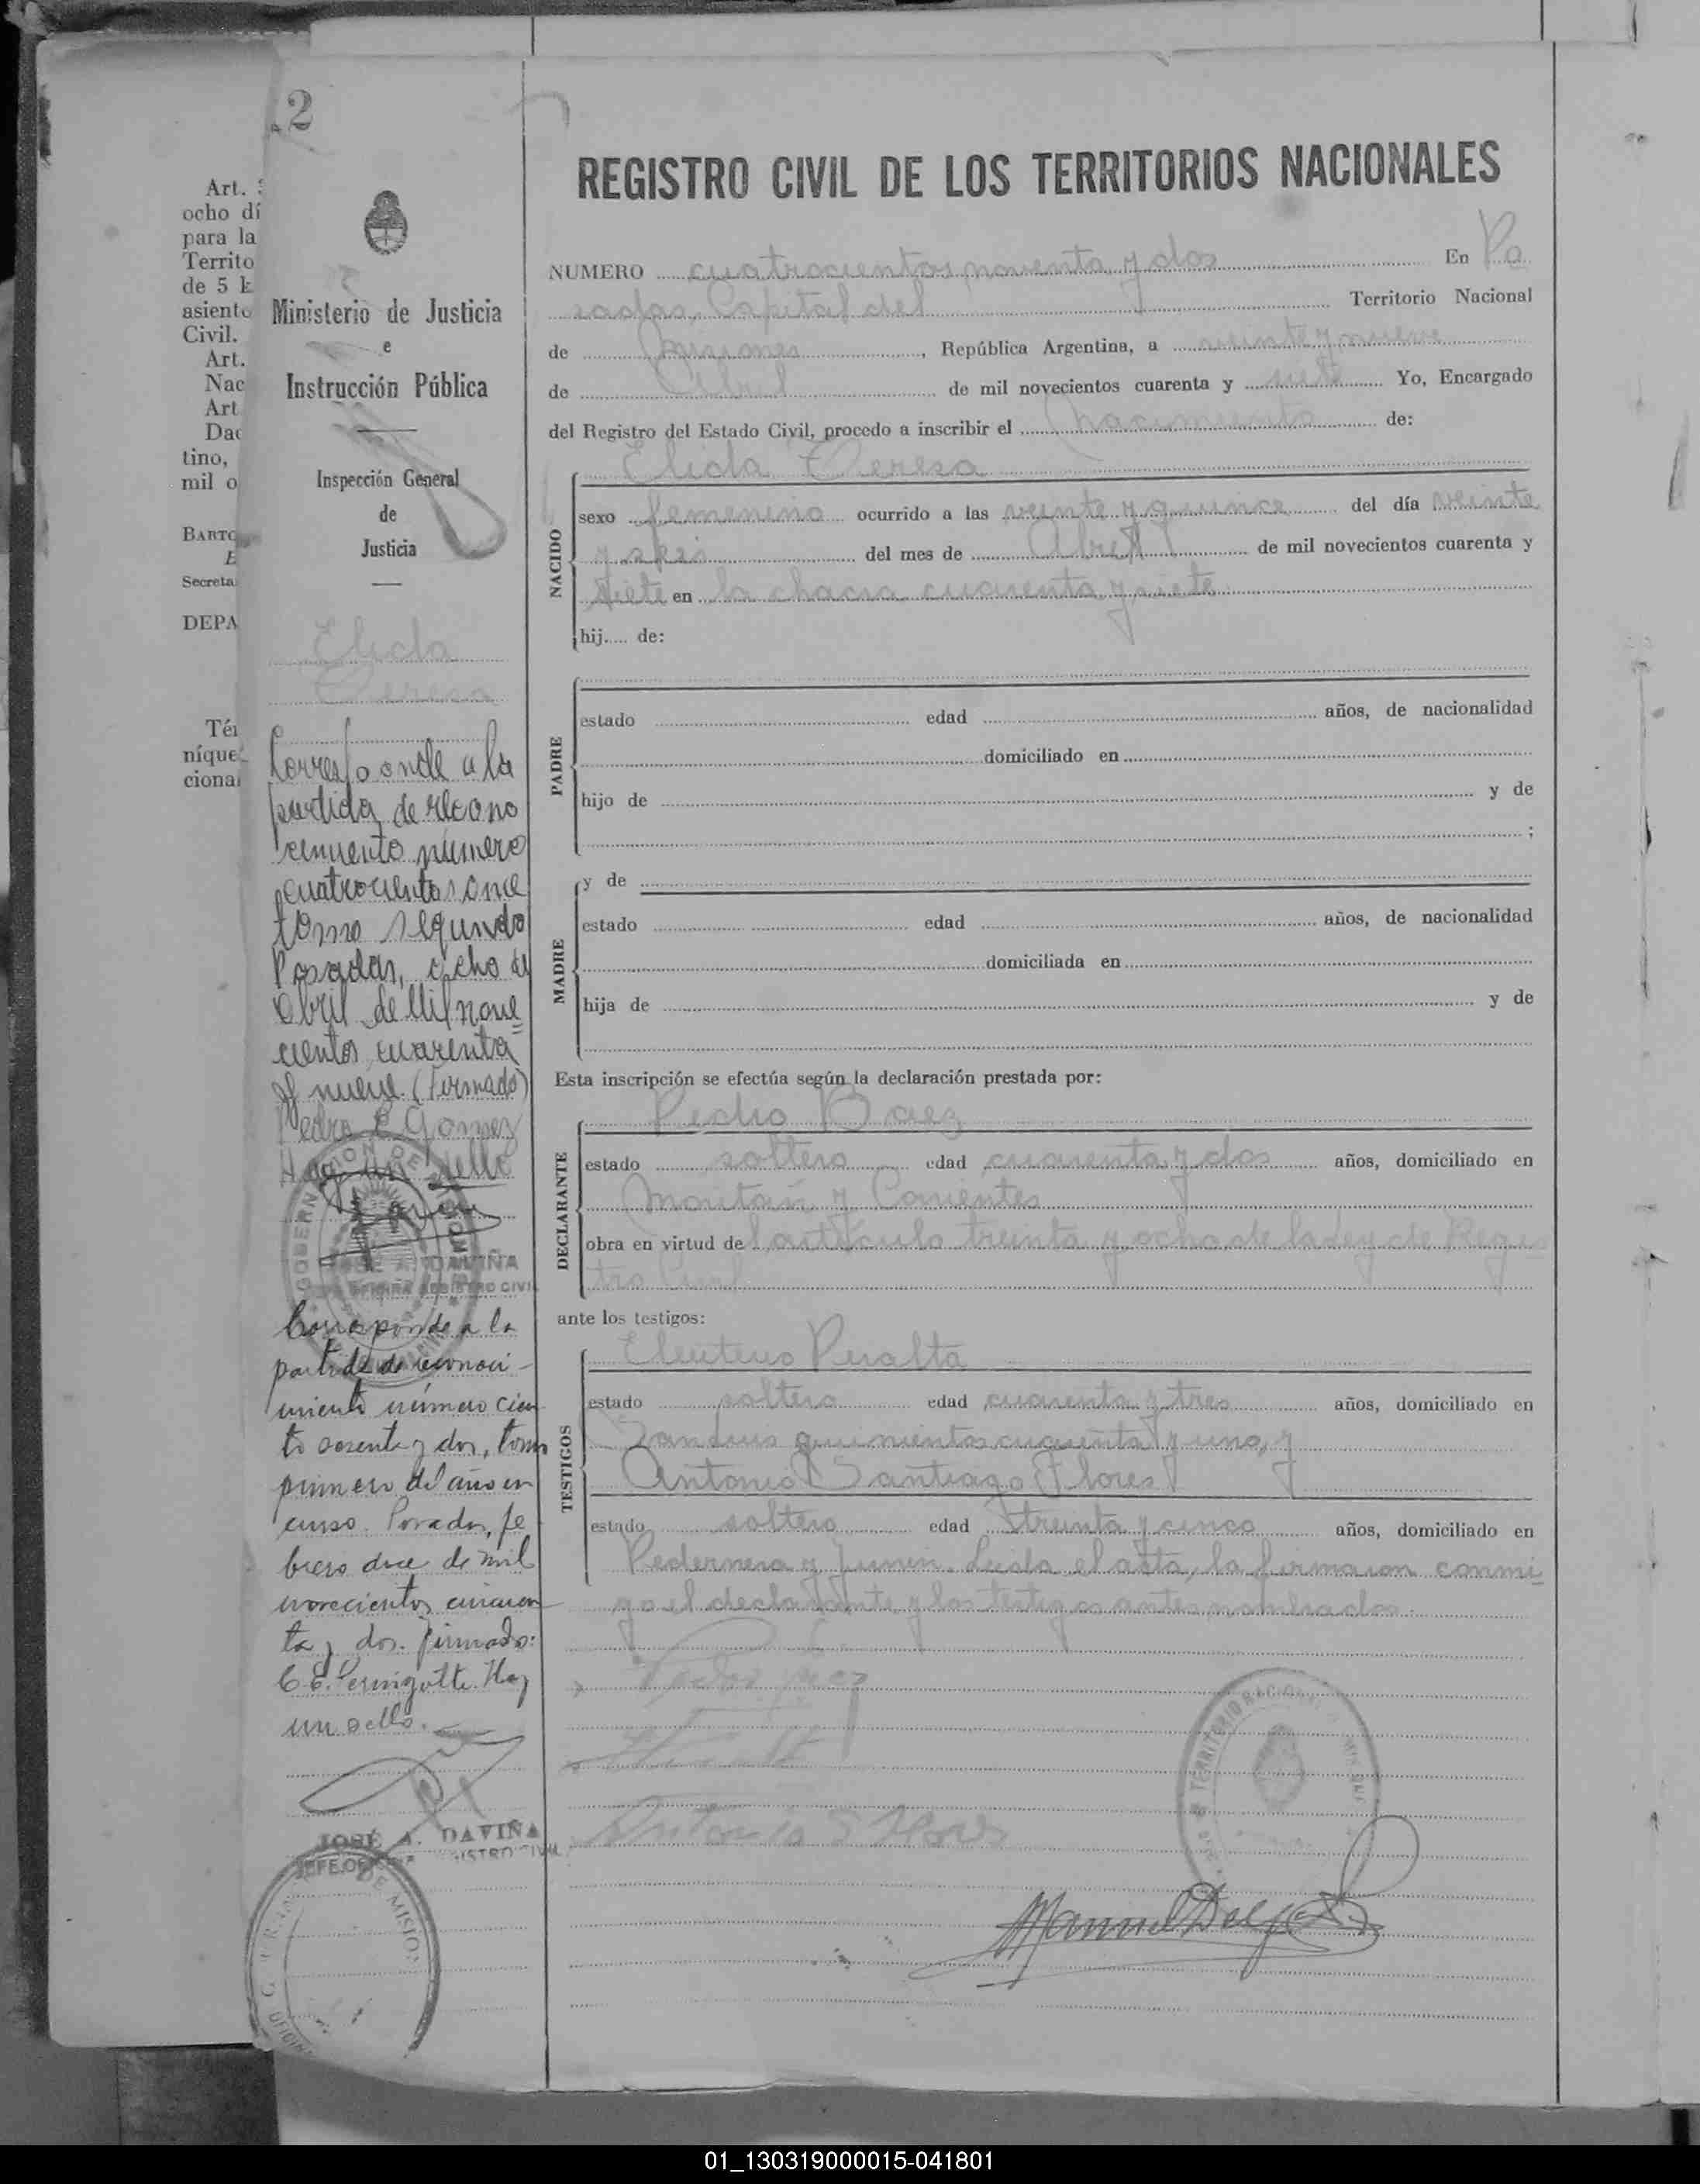 .2
Art.
ocho dí
para la
Territo
de 5 k
asiento
Civil.
Art.
Nac
Art
Dad
tino,
mil o
BARTO
E
Secreta
DEPA
Tér
níque
cional
Ministerio de Justicia
e
Instrucción Pública
Inspección General
de
Justicia
Elida
Teresa
Corresponde a la
partida de recono
cimiento número
cuatrocientos once
tomo segundo
Posadas, ocho de
Abril de Mil nove
cientos cuarenta
y nueve. (Firmado)
Pedro E Gomez
Hay un sello
GOBERNACION DE MISIONES
JOSE A. DAVIÑA
JEFE OFICINA REGISTRO CIVIL
Corresponde a la
partida de reconoci-
miento número cien
to sesenta y dos, tomo
primero del año en
curso. Posadas, fe
brero doce de mil
novecientos cincuen
ta y dos. Firmado:
C. E. Peringotte. Hay
un sello.
JOSÉ A. DAVIÑA
JEFE OFICINA REGISTRO CIVIL
DE MISION
REGISTRO CIVIL DE LOS TERRITORIOS NACIONALES
NUMERO cuatrocientos noventa y dos En Po
sadas, Capital del Territorio Nacional
de Misiones, República Argentina, a veinte y nueve
de Abril de mil novecientos cuarenta y siete Yo, Encargado
del Registro del Estado Civil, procedo a inscribir el nacimiento de:
Elida Teresa
NACIDO
sexo femenino ocurrido a las veinte y quince del día veinte
y seis del mes de Abril de mil novecientos cuarenta y
siete en la chacra cuarenta y siete
hij.... de:
PADRE
estado edad años, de nacionalidad
domiciliado en
hijo de y de
;
MADRE
y de
estado edad años, de nacionalidad
domiciliada en
hija de y de
Esta inscripción se efectúa según la declaración prestada por:
Pedro Baez
DECLARANTE
estado soltero edad cuarenta y dos años, domiciliado en
y Corrientes
obra en virtud del artículo treinta y ocho de la Ley de Regis
tro Civil
ante los testigos:
Eleuterio Peralta
TESTIGOS
estado soltero edad cuarenta y tres años, domiciliado en
quinientos cuarenta y uno, y
Antonio Santiago Flores
estado soltero edad treinta y cinco años, domiciliado en
Pedernera y Junin. Leida el acta, la firmaron conmi
go el declarante y los testigos antes nombrados.
Pedro Baez
Antonio S Flores
Manuel Delga
01_130319000015-041801